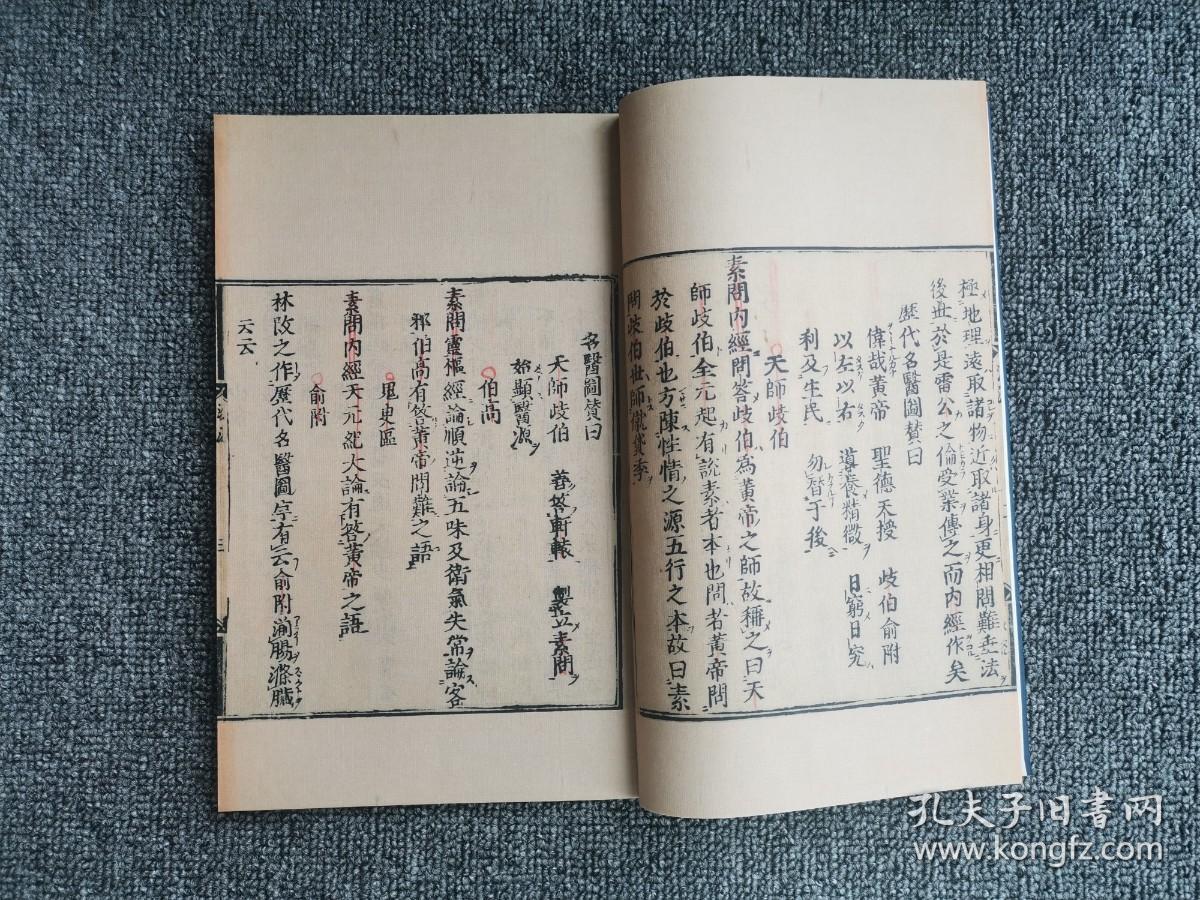 極地理遠取諸物近取諸身更相問難垂法
後世於是雷公之倫受業傳之而内經作矣
歷代名醫圖贊曰
偉哉黃帝　聖德天授　岐伯俞附
以左以右　導養精微　日窮日究
利及生民　勿替于後
天師岐伯
素問内經問答岐伯為黃帝之師故稱之曰天
師岐伯全元起有訛素者本也問者黃帝問
於岐伯也方陳性情之源五行之本故曰素
問岐伯世師僦貸季
名醫圖贊曰
天師岐伯　善答軒轅　製立素問
始顯醫源
伯高
素問靈樞經論順逆論五味及衛氣失常論客
邪伯高有答黃帝問難之語
鬼臾區
素問内經天元紀大論有答黃帝之語
俞附
林攺之作歷代名醫圖序有云俞附湔腸滌臟
云云
三
孔夫子旧书网
www.kongfz.com